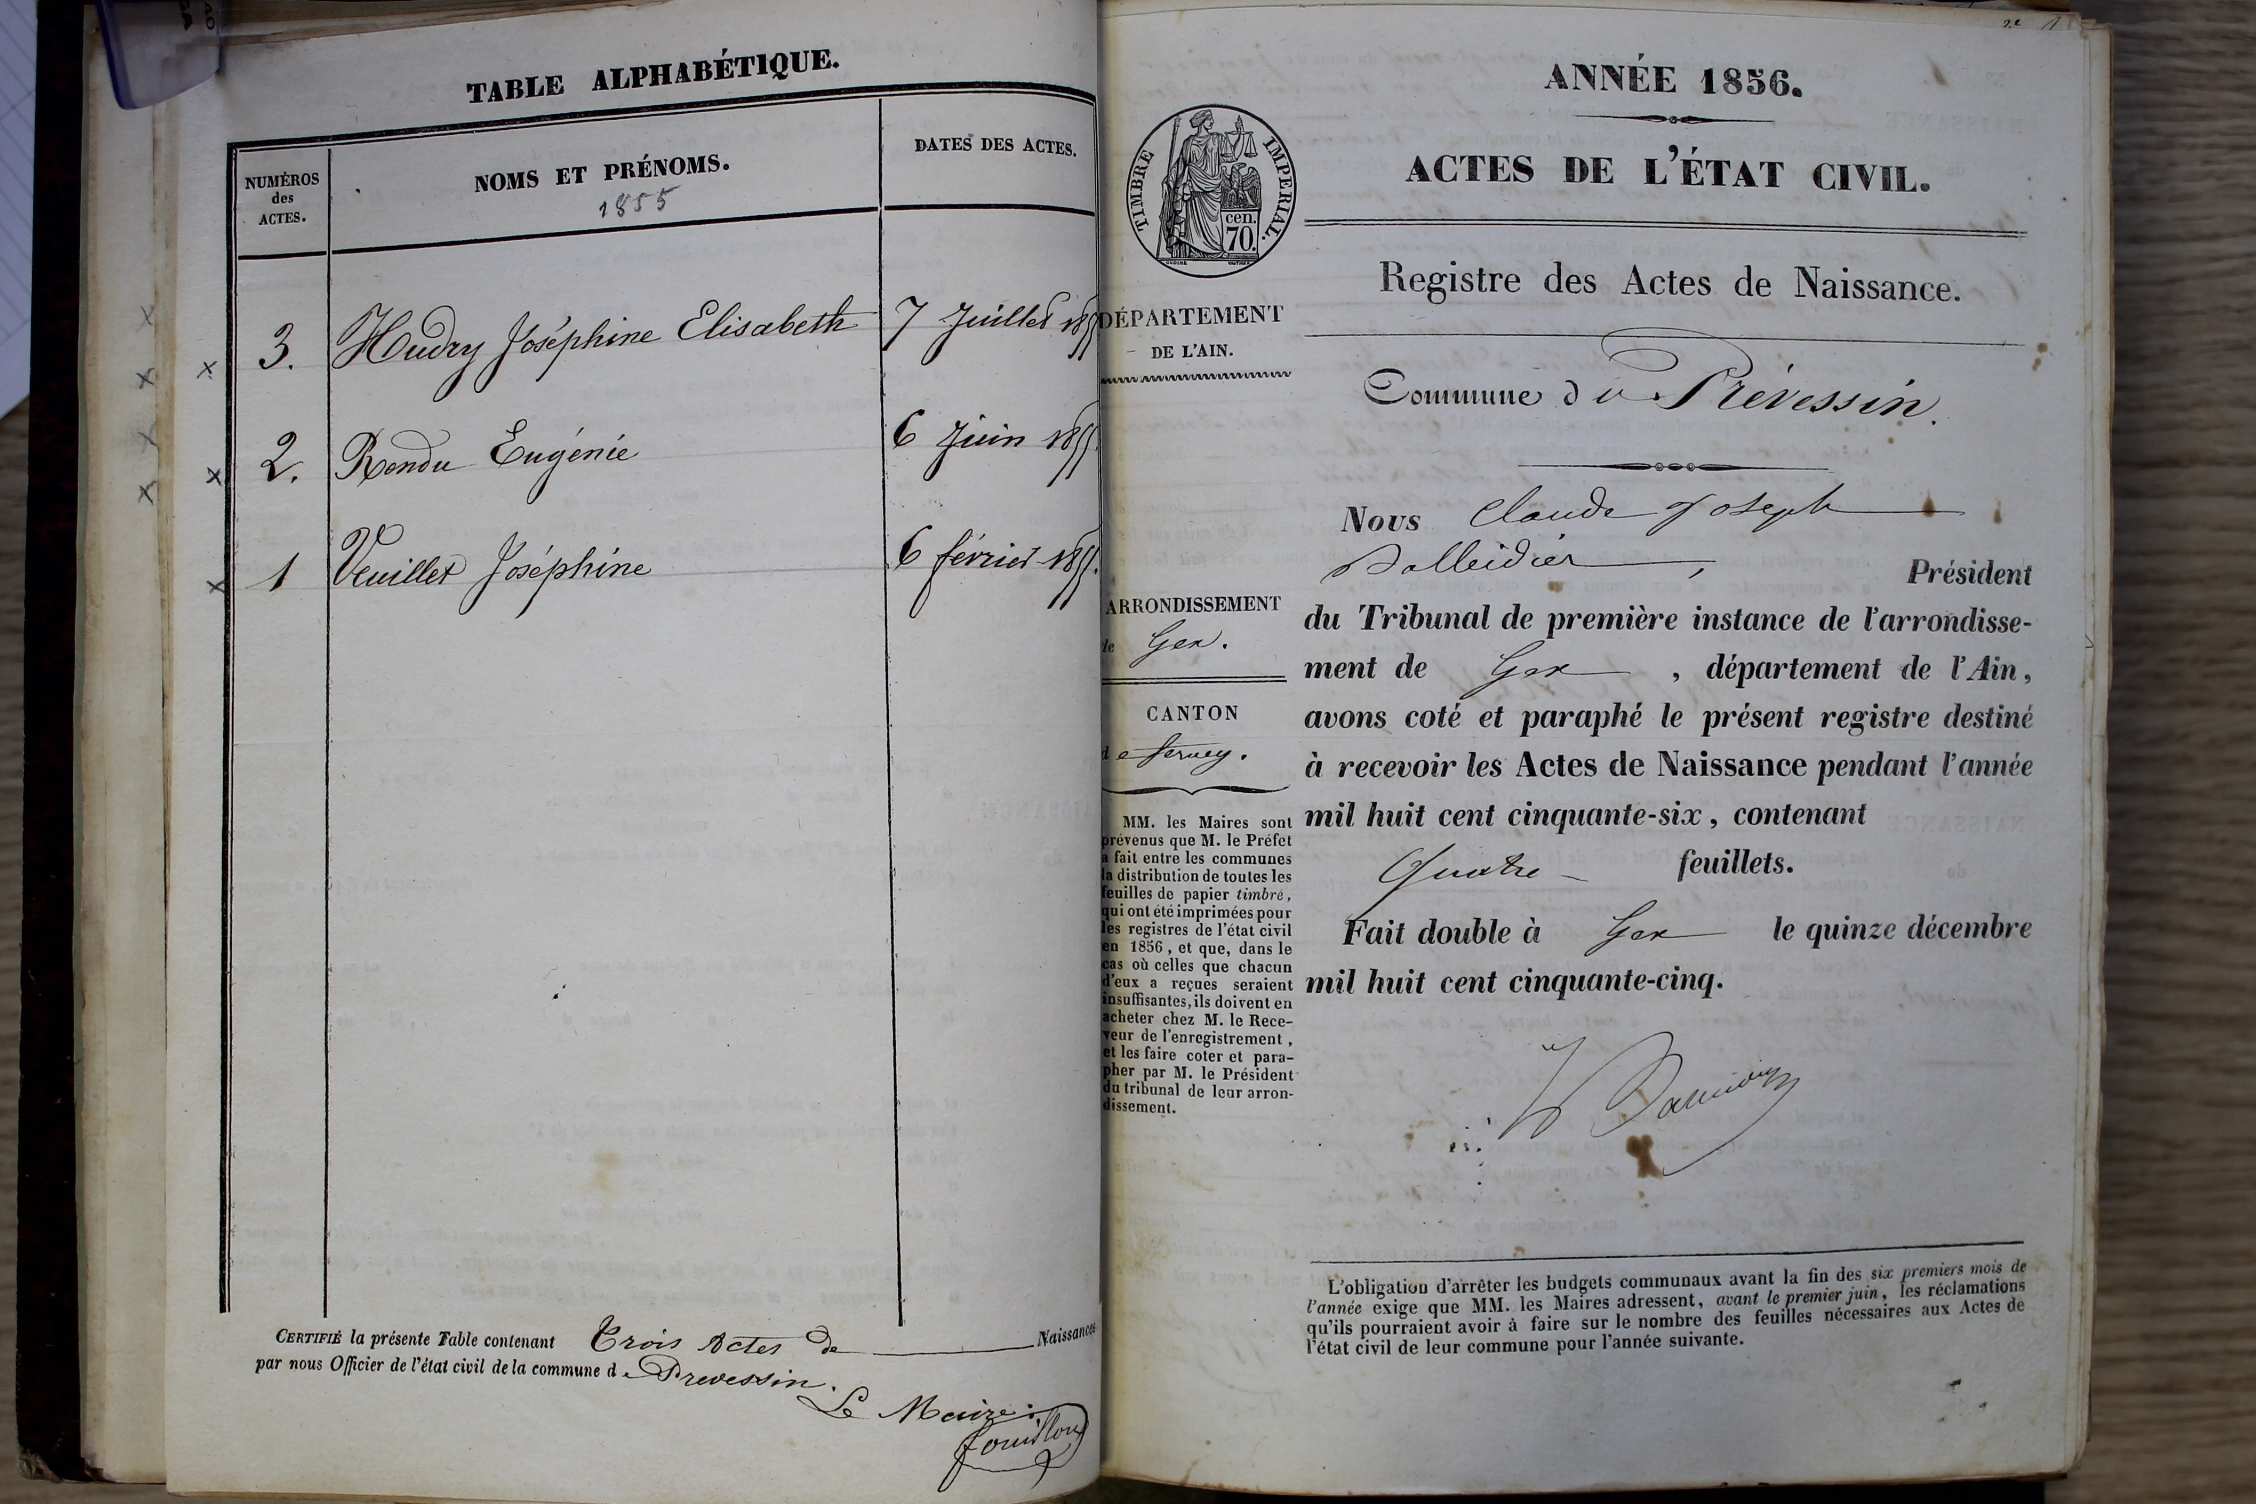 TABLE ALPHABÉTIQUE.
NUMÉROS
des
ACTES.
NOMS ET PRÉNOMS.
1855
DATES DES ACTES.
3. Hudry Joséphine Elisabeth 7 Juillet 1855
2. Rendu Eugénie 6 Juin 1855.
1 Veuillet Joséphine 6 février 1855.
CERTIFIÉ la présente Table contenant Trois Actes de Naissances
par nous Officier de l'état civil de la commune de Prevessin.
Le Maire:
fouilloux
ANNÉE 1856.
ACTES DE L'ÉTAT CIVIL.
TIMBRE IMPERIAL.
cen.
70.
Registre des Actes de Naissance.
DÉPARTEMENT
DE L'AIN.
Commune de Prévessin.
ARRONDISSEMENT
de Gex.
CANTON
de ferney.
MM. les Maires sont
prévenus que M. le Préfet
a fait entre les communes
la distribution de toutes les
feuilles de papier timbré,
qui ont été imprimées pour
les registres de l'état civil
en 1856, et que, dans le
cas où celles que chacun
d'eux a reçues seraient
insuffisantes, ils doivent en
acheter chez M. le Rece-
veur de l'enregistrement,
et les faire coter et para-
pher par M. le Président
du tribunal de leur arron-
dissement.
Nous Claude Joseph
Président
du Tribunal de première instance de l'arrondisse-
ment de Gex, département de l'Ain,
avons coté et paraphé le présent registre destiné
à recevoir les Actes de Naissance pendant l'année
mil huit cent cinquante-six, contenant
Quatre feuillets.
Fait double à Gex le quinze décembre
mil huit cent cinquante-cinq.
L'obligation d'arrêter les budgets communaux avant la fin des six premiers mois de
l'année exige que MM. les Maires adressent, avant le premier juin, les réclamations
qu'ils pourraient avoir à faire sur le nombre des feuilles nécessaires aux Actes de
l'état civil de leur commune pour l'année suivante.